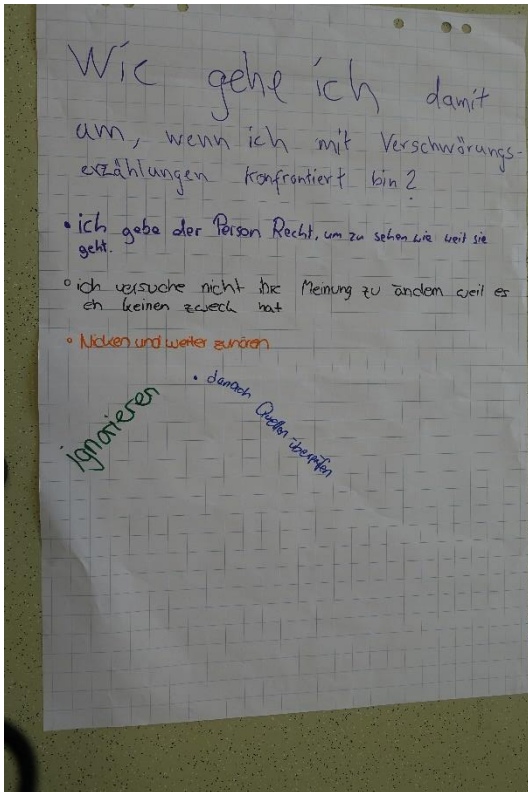 Wie gehe ich damit
um, wenn ich mit Verschwörungs-
erzählungen konfrontiert bin?
• ich gebe der Person Recht, um zu sehen wie weit sie
geht.
• ich versuche nicht ihre Meinung zu ändern weil es
eh keinen zweck hat
• Nicken und weiter zuhören
ignorieren
• danach Quellen überprüfen